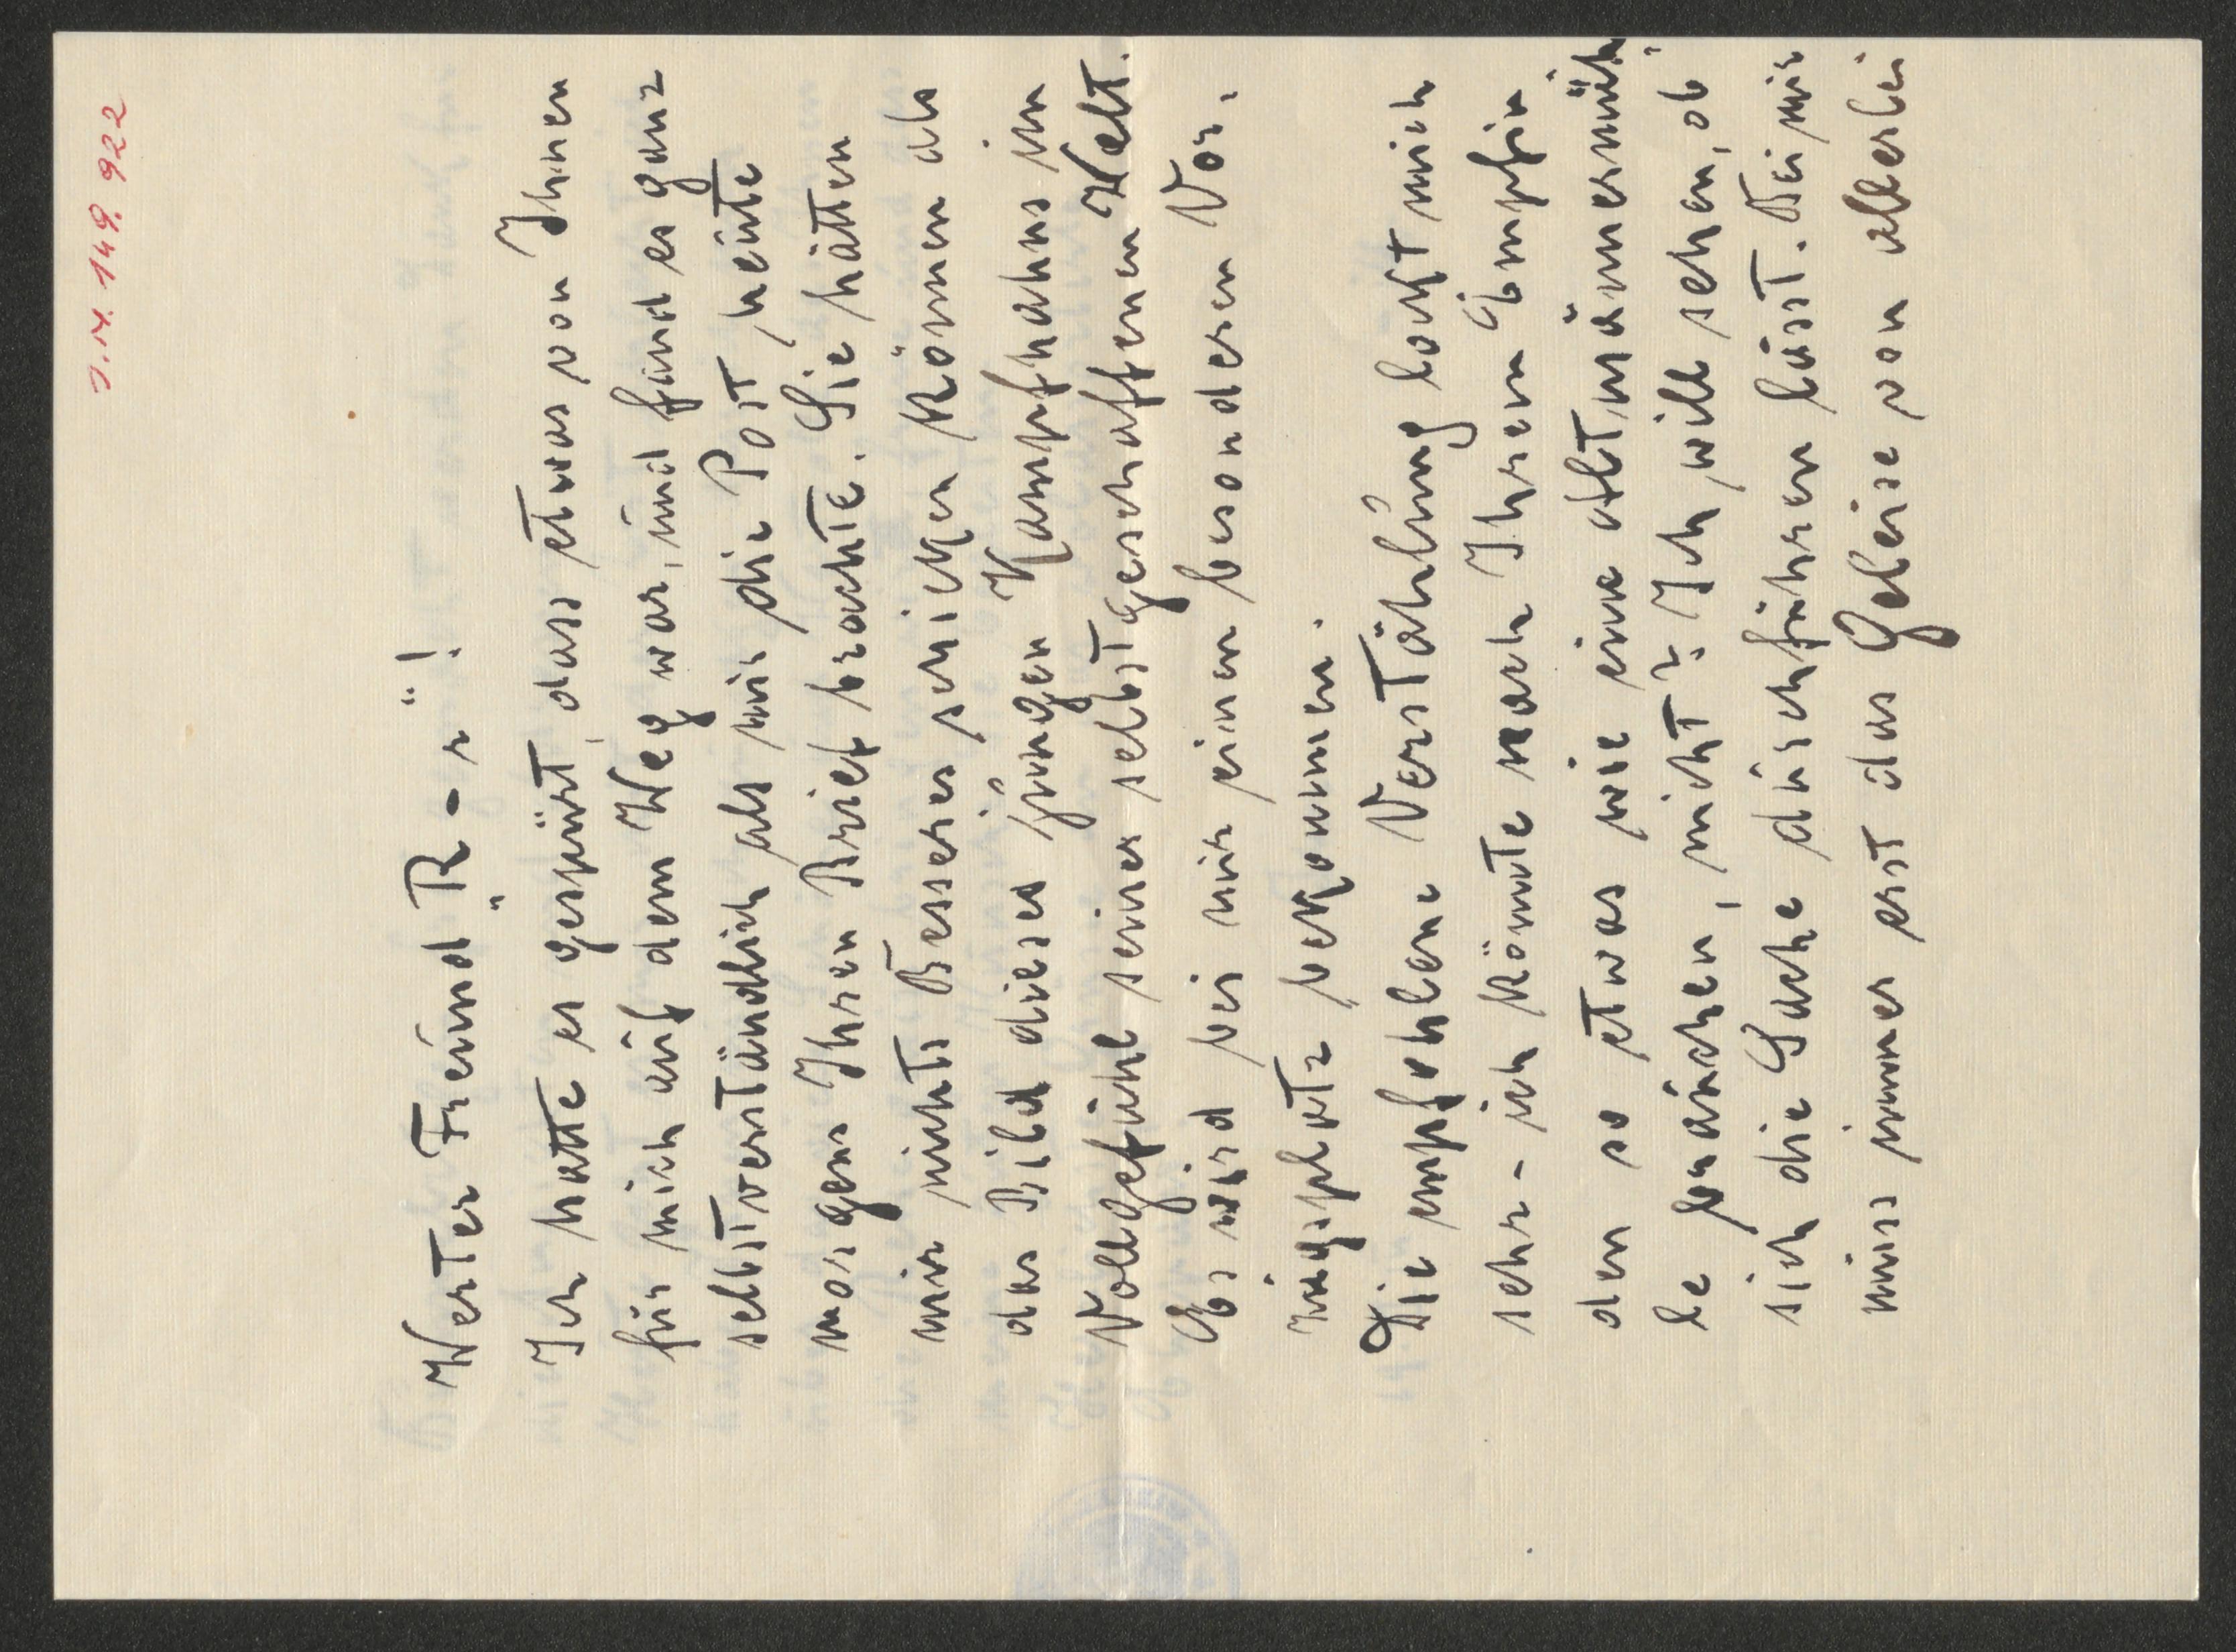 J.N. 149.922
Werter Freund "R-r"!
Ich hatte es gespürt, dass etwas von Ihnen
für mich auf dem Weg war, und fand es ganz
selbstverständlich als mir die Post heute
morgens Ihren Brief brachte. Sie hätten
mir nichts Besseres schicken können als
das Bild dieses jungen Kampfhahns im
Vollgefühl seiner selbstgeschaffenen Welt.
Es wird bei mir einen besonderen Vor-
zugsplatz bekommen.
Die empfohlene Verstählung lockt mich
sehr - ich könnte nach Ihrem Empfin
den so etwas wie eine Altmännermüh
le brauchen, nicht? Ich will sehen, ob
sich die Sache durchführen lässt. Bei mir
muss immer erst das Geleise von allerlei